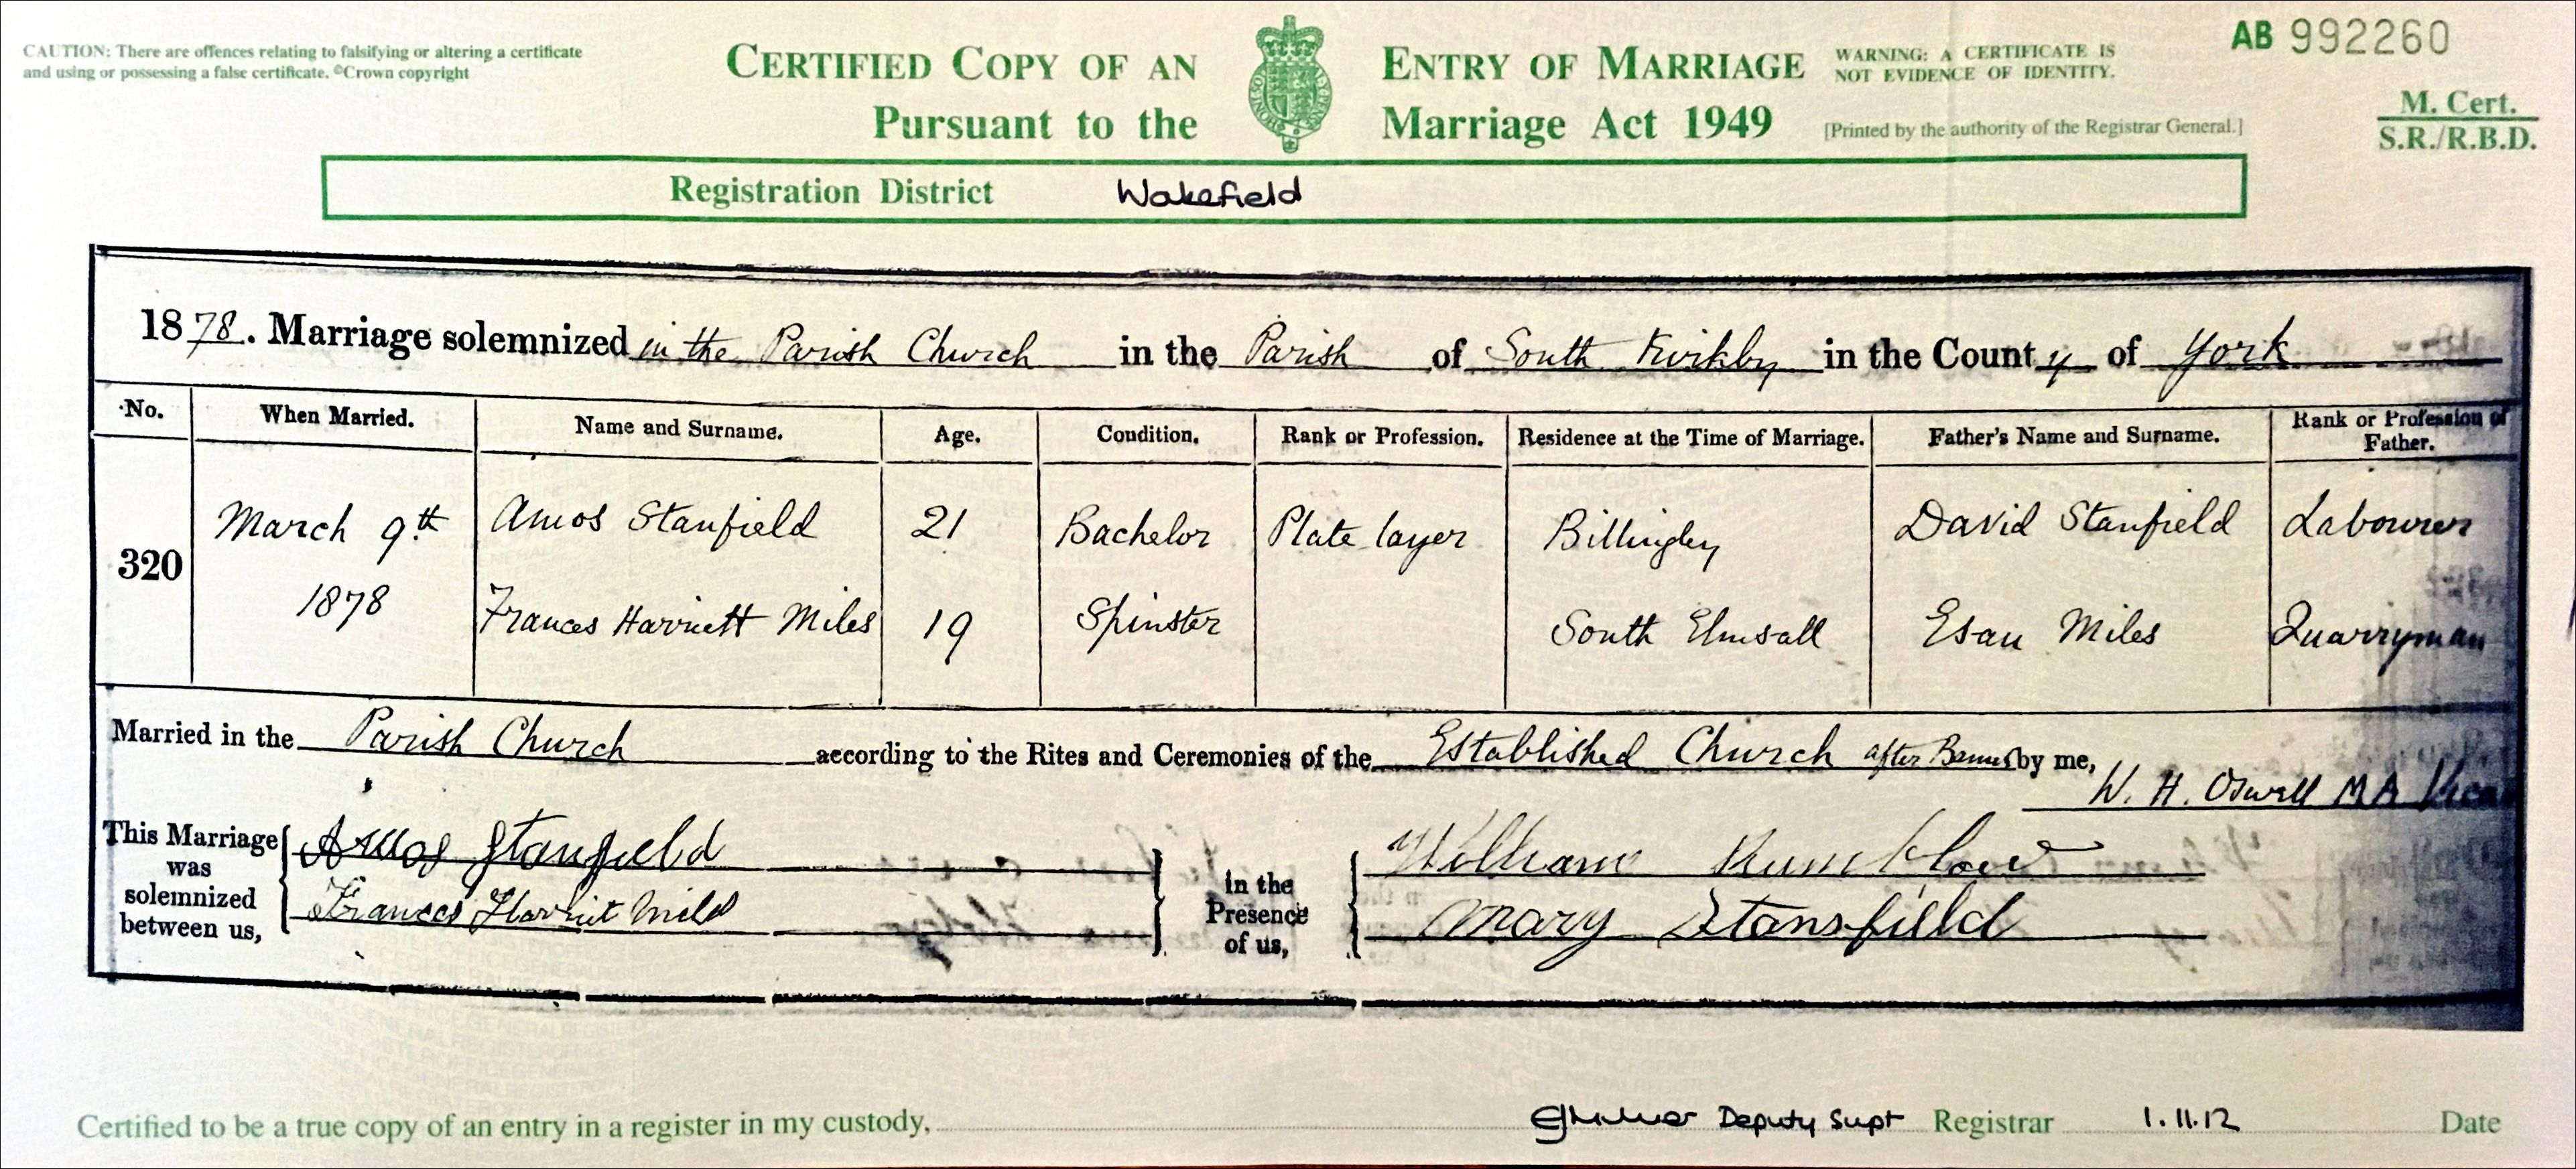 CAUTION: There are offences relating to falsifying or altering a certificate
and using or possessing a false certificate. ©Crown copyright
CERTIFIED COPY OF AN ENTRY OF MARRIAGE
Pursuant to the Marriage Act 1949
WARNING: A CERTIFICATE IS
NOT EVIDENCE OF IDENTITY.
[Printed by the authority of the Registrar General.]
AB 992260
M. Cert.
S.R./R.B.D.
Registration District Wakefield
1878. Marriage solemnized in the Parish Church in the Parish of South Kirkby in the County of York
No. When Married. Name and Surname. Age. Condition. Rank or Profession. Residence at the Time of Marriage. Father's Name and Surname. Rank or Profession of Father.
320 March 9th 1878
Amos Stanfield 21 Bachelor Plate layer Billingley David Stanfield Labourer
Frances Harriett Miles 19 Spinster South Elmsall Esau Miles Quarryman
Married in the Parish Church according to the Rites and Ceremonies of the Established Church after Banns by me,
W. H. Oswell MA Vicar
This Marriage was solemnized between us,
Amos Stanfield
Frances Harriet Miles
in the Presence of us,
William
Mary Stansfield
Certified to be a true copy of an entry in a register in my custody, Deputy Supt Registrar 1.11.12 Date